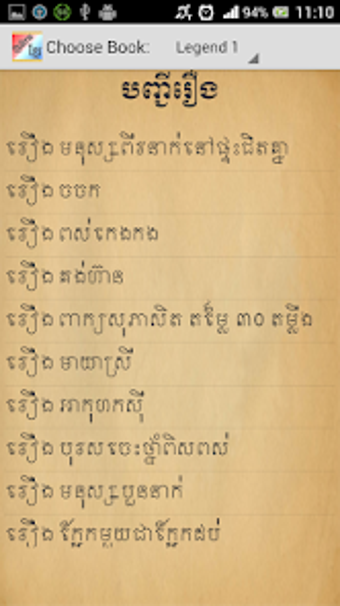 94% 11:10
Choose Book: Legend 1
បញ្ជីរឿង
រឿង មនុស្សពីរនាក់នៅផ្ទះជិតគ្នា
រឿង ចចក
រឿង ពស់កេងកង
រឿង គង់ហ៊ាន
រឿង ពាក្យសុភាសិត តម្លៃ ៣០ តម្លឹង
រឿង មាយាស្រី
រឿង អាកុហកស៊ី
រឿង បុរសចេះថ្នាំពិសពស់
រឿង មនុស្សបួននាក់
រឿង ក្អែកមួយជាក្អែកដប់